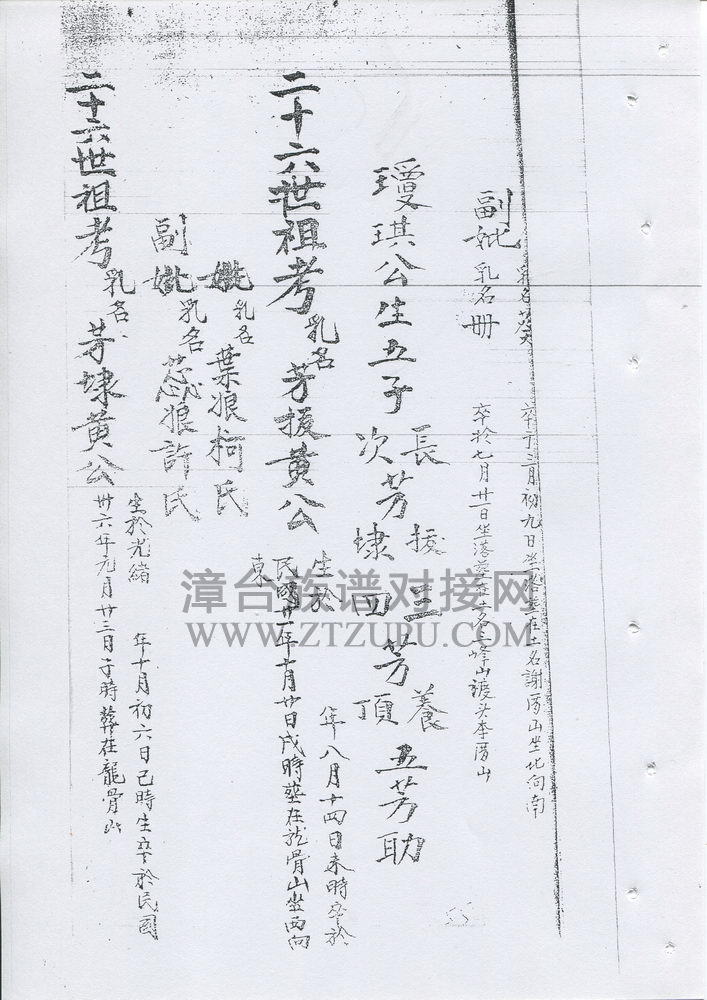 乳名葵
卒于三月初九日坐落土在土名謝厝山坐北向南
副妣乳名册
卒於七月廿一日坐落土名三峰山渡头李厝山
瓊琪公生五子長芳援三芳養五芳助
次芳埭四芳頂
二十六世祖考乳名芳援黄公
生於 年八月十四日未時卒於
民國廿一年十月廿日戌時塟在龙骨山坐西向
東
妣乳名葉娘柯氏
副妣乳名蕊娘許氏
二十六世祖考乳名芳埭黄公
生於光緒 年十月初六日己時生卒於民國
卅六年九月廿三日子時葬在龍骨山
漳台族谱对接网
WWW.ZTZUPU.COM